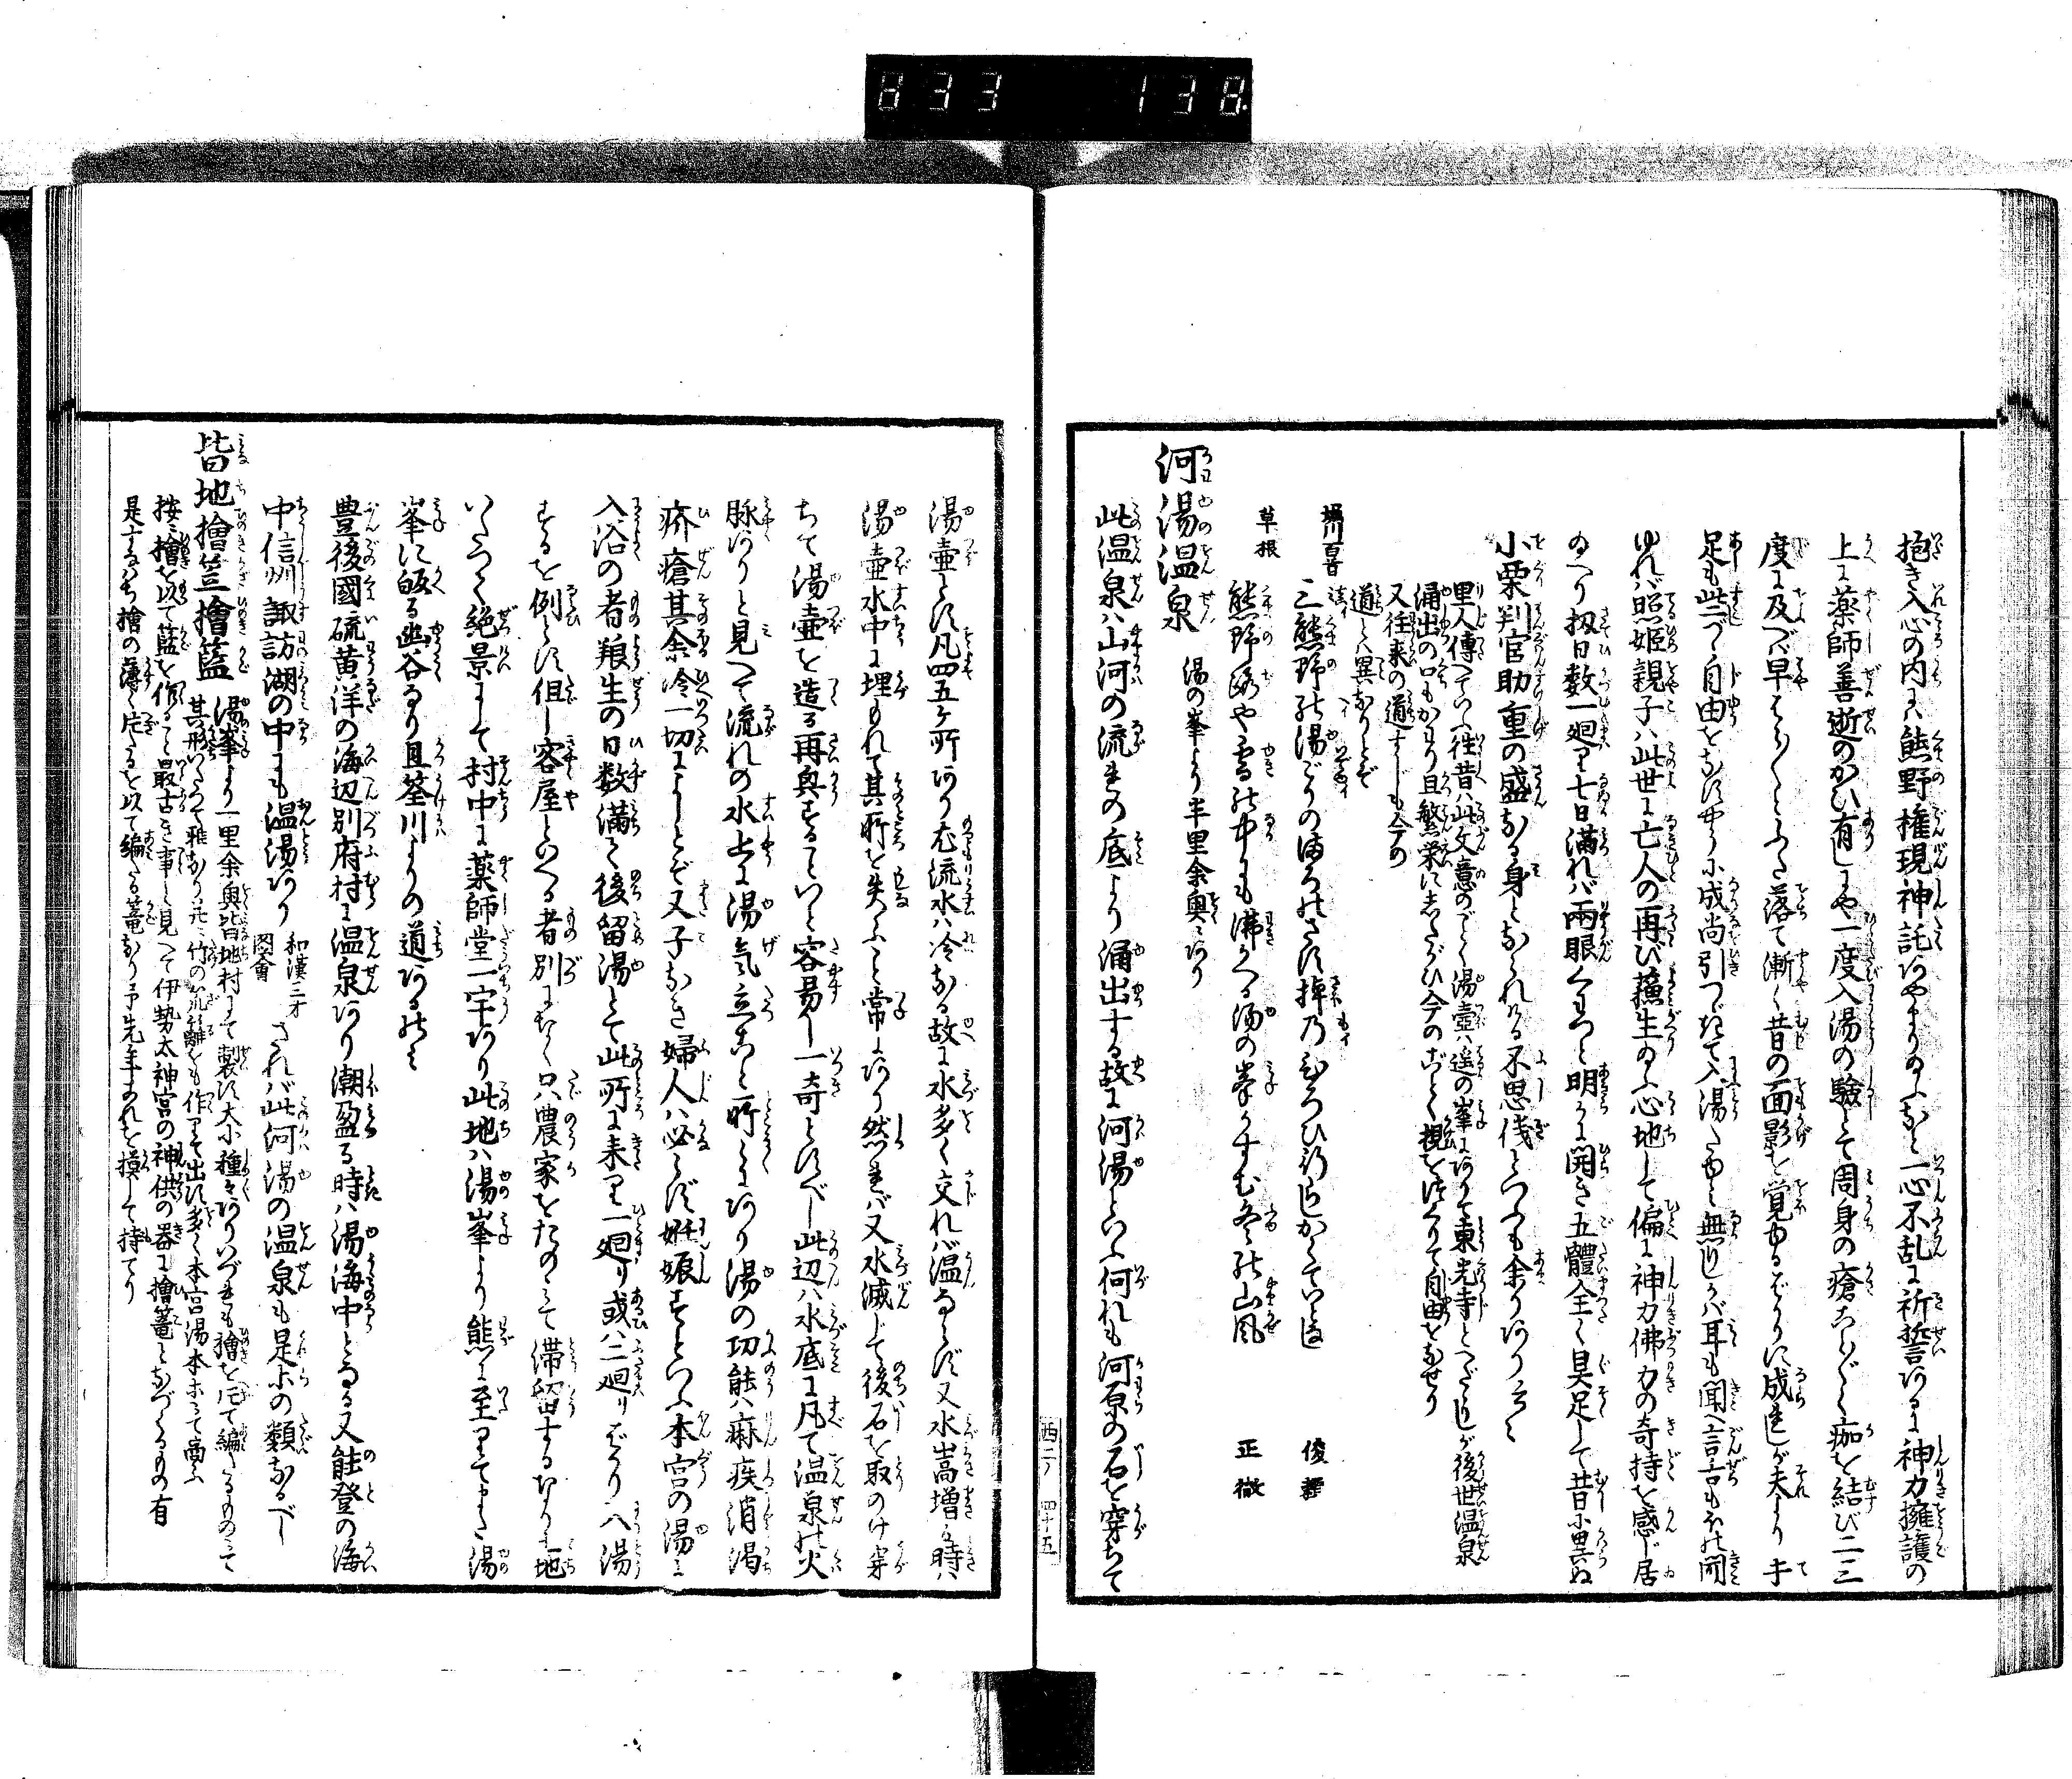 833 138
抱き入心の内にハ熊野権現神託あやまり給ふなと一心不乱に祈誓あるに神力擁護の
上に薬師善逝のかい有しにや一度入湯の驗とて周身の瘡ことごとく痂を結び二三
度に及へバ早はらはらとふき落て漸く昔の面影を覚ゆるばかりに成しが夫より手
足も此つゞ自由をなすやうに成尚引つゞきて入湯たゆミ無りしかバ耳も聞へ言舌もほの聞
ゆれバ照姫親子ハ此世に亡人の再び蘇生の心地して偏に神力佛力の奇持を感じ居
給へり扨日数一廻り七日満れバ兩眼くわつと明らかに開き五體全く具足して昔に異ならぬ
小栗判官助重の盛なる身となられける不思儀といふも余りあり云々
里人傳へていふ往昔ハ此文意のごとく湯壺ハ遥の峯にありて東光寺とへだゝりしが後世温泉
涌出の口もかわり且繁栄にしたがひ今のごとく規を改めて自由をなせり
又往来の道すじも今の
道とハ異なりとぞ
堀川百首 三熊野の湯ごりのまろをさす棹の ひろひ行らしかくていとなし 俊頼
草根 熊野路や雪の中にも沸かへる湯の峯かすむ冬の山風 正徹
河湯温泉 湯の峯より半里余奥にあり
此温泉ハ山河の流れの底より涌出する故に河湯といふ何れも河原の石を穿ちて
湯壷とす凡四五ヶ所あり尤流水ハ冷なる故に水多く交れバ温ならず又水嵩増る時ハ
湯壷水中に埋もれて其所を失ふこと常にあり然れバ又水減じて後石を取のけ穿
ちて湯壷を造る再興すること容易し一奇とすべし此辺ハ水底に凡て温泉の火
脉ありと見へて流れの水上に湯気立こと所々にあり湯の功能ハ痳疾消渇
疥瘡其余冷一切によしとぞ又子なき婦人ハ必らず姙娠すといふ本宮の湯に
入浴の者粮生の日数満て後留湯とて此所に来り一廻り或ハ二廻りばかり入湯
するを例とす但し客屋といへる者別になく只農家をたのミて滞留するなり土地
いたつて絶景にして村中に薬師堂一宇あり此地ハ湯峯より熊に至りてまた湯
峯に皈る幽谷なり且筌川よりの道あるのミ
豊後國硫黄洋の海辺別府村に温泉あり潮盈る時ハ湯海中となる又能登の海
中信州諏訪湖の中にも温湯あり 和漢三才図會 されバ此河湯の温泉も是ホの類なるべし
皆地檜笠檜籃 湯峯より一里余奥皆地村にて製す大小種々ありいづれも檜を片て編たるものにて
其形いたつて雅なり亦竹の笊籬をも作りて出す多く本宮湯本ホにて商ふ
按に檜を以て籃を作ること最古き事と見へて伊勢太神宮の神供の器に檜篭となづくるもの有
是すなはち檜の薄く片たるを以て編たる篭なり予先年まのれを摸して持てり
西ニノ 四十五